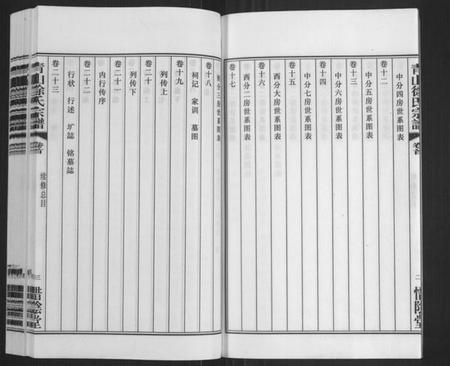 青山徐氏宗譜
卷首
卷十二
中分五房世系圖表
卷十三
中分六房世系圖表
卷十四
中分七房世系圖表
卷十五
西分大房世系圖表
卷十六
西分二房世系圖表
卷十七
二
惜陰堂
西分三房世系圖表
卷十八
祠记 家训 墓图
卷十九
列传上
卷二十
列传下
卷二十一
内行传序
卷二十二
行状 行述 圹誌 铭墓誌
卷二十三
青山徐氏宗譜
卷首
续修总目
三
惜陰堂